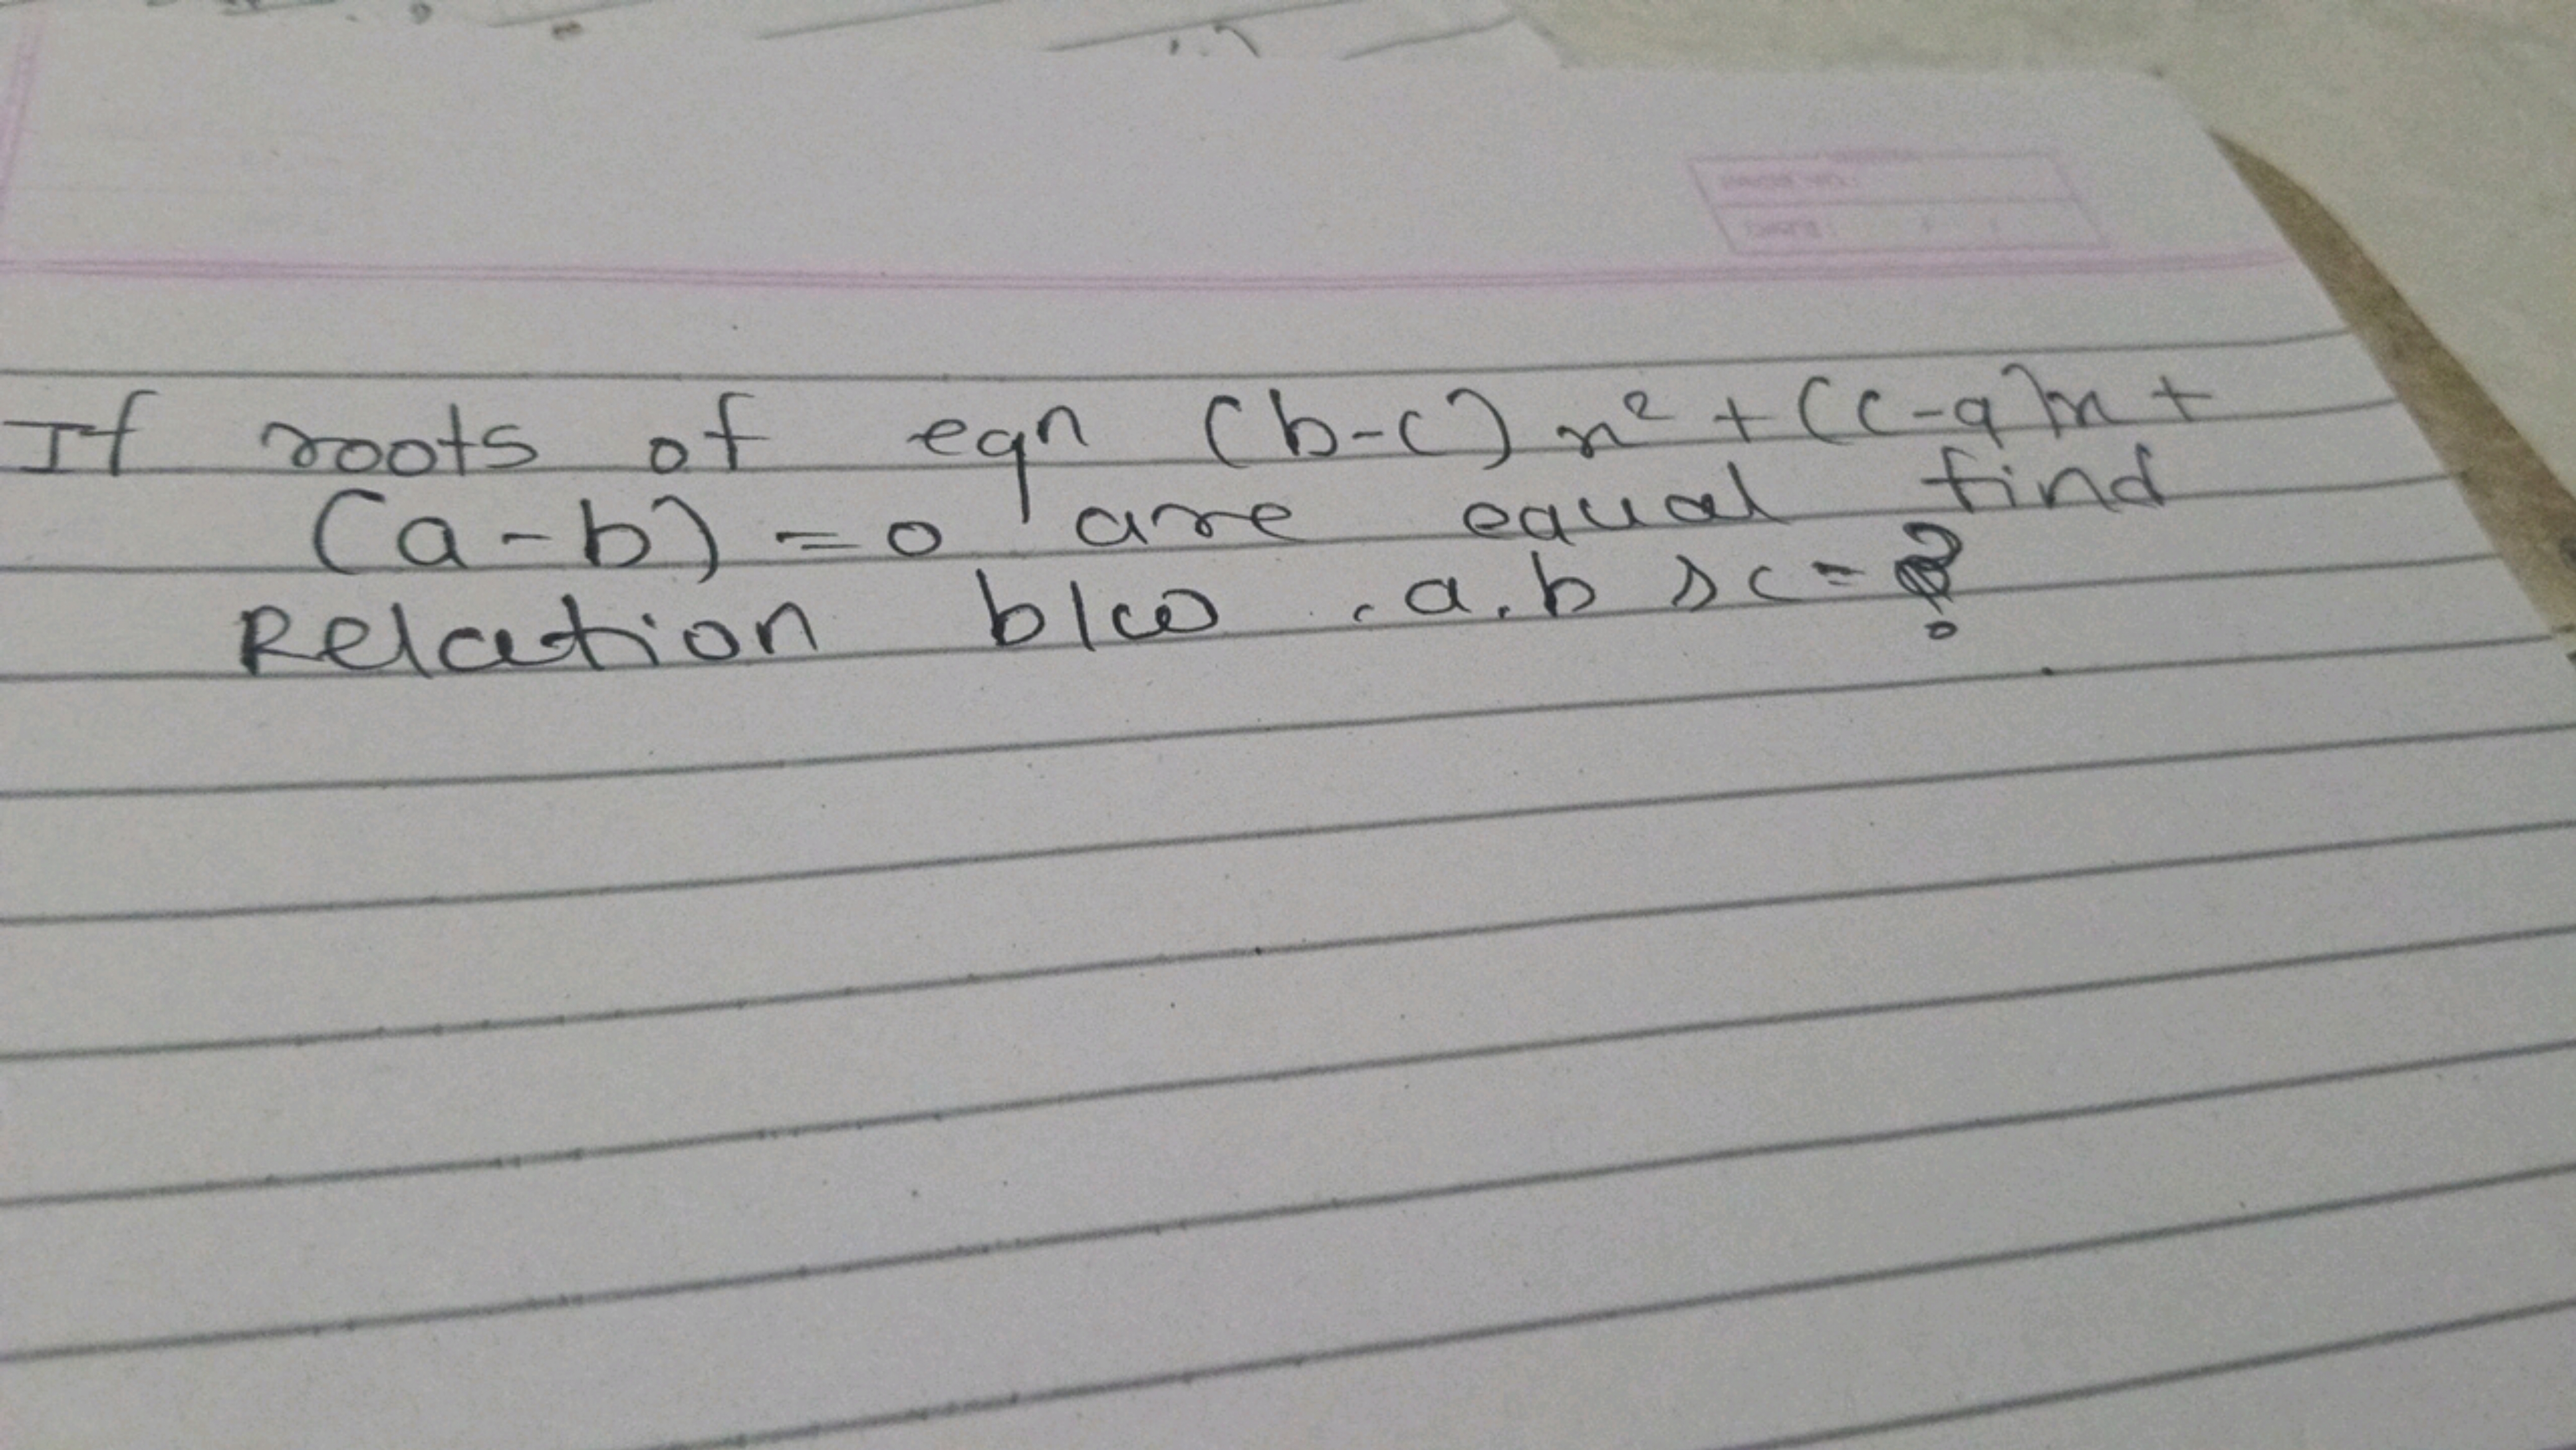 If roots of eqn (b-c) x² + (c-a)x +
(a-b) = 0 are equal find
Relation b/w . a, b & c = ?